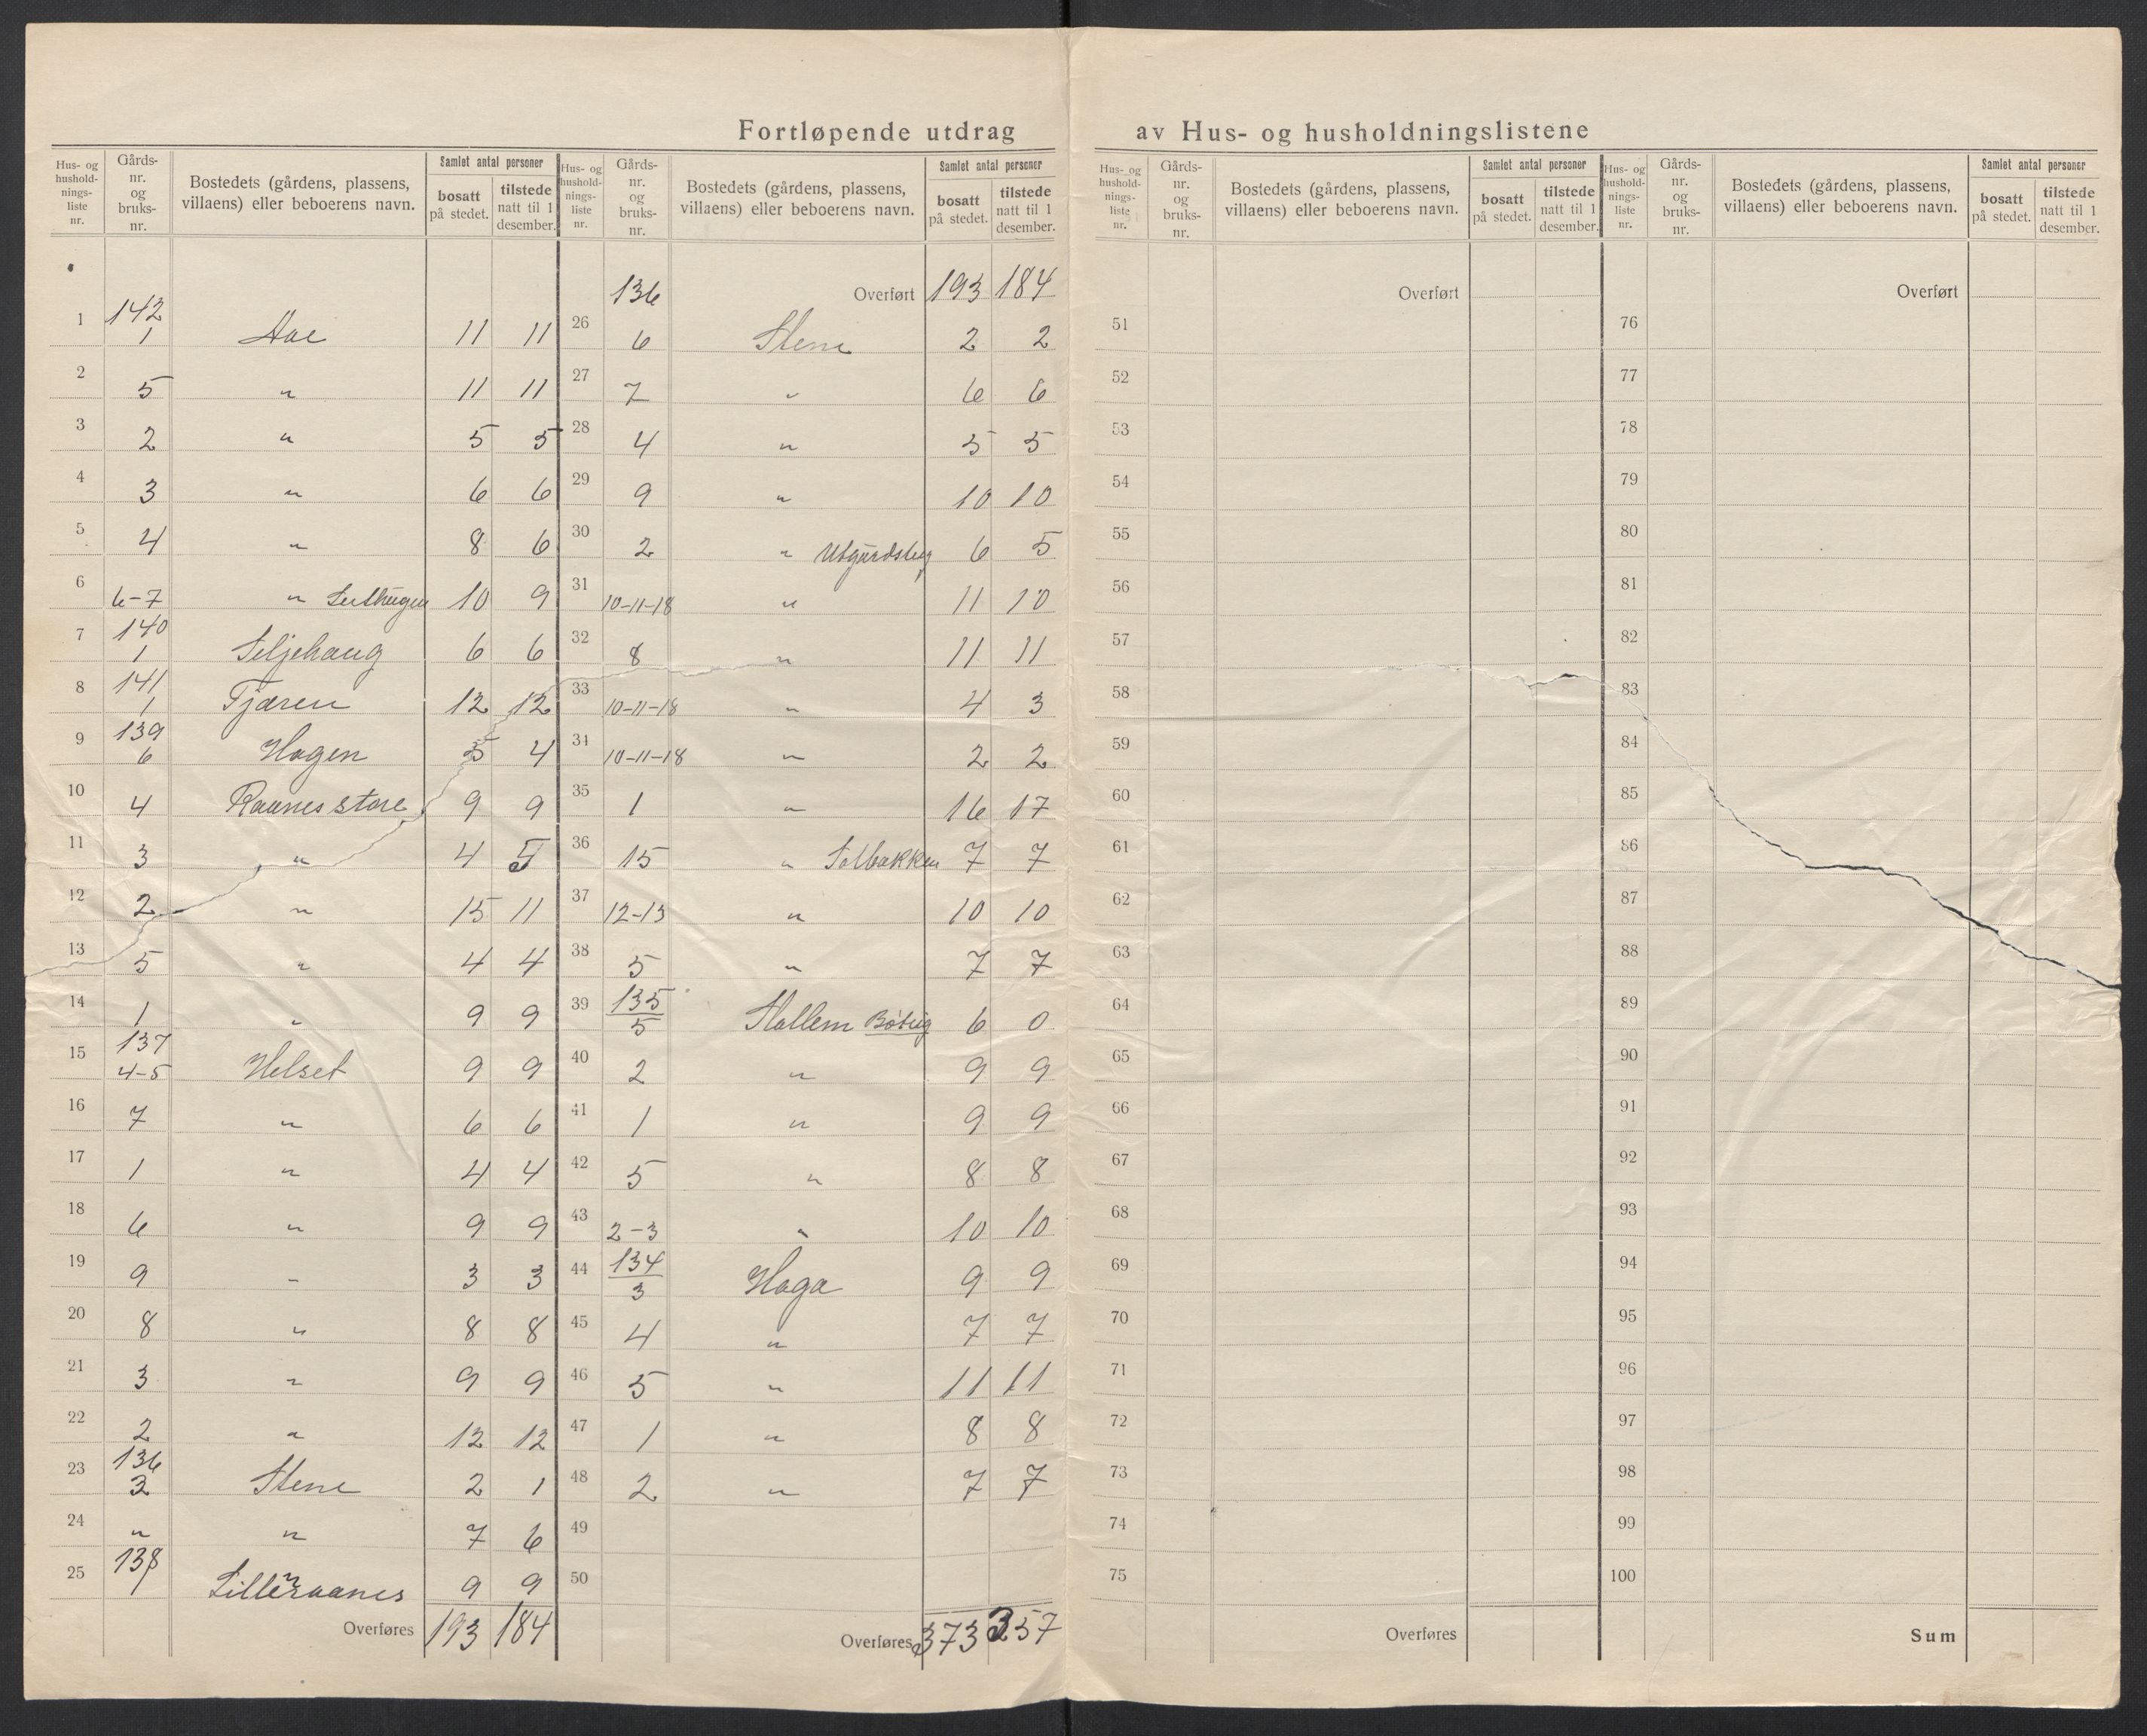 Fortløpende utdrag av Hus- og husholdningslistene
Hus- og hushold- nings- liste nr. | Gårds- nr. og bruks- nr. | Bostedets (gårdens, plassens, villaens) eller beboerens navn. | Samlet antal personer bosatt på stedet. | tilstede natt til 1 desember.
142
1 | 1 | Aae | 11 | 11
2 | 5 | " | 11 | 11
3 | 2 | " | 5 | 5
4 | 3 | " | 6 | 6
5 | 4 | " | 8 | 6
6 | 6-7 | " | 10 | 9
140
7 | 1 | Seljehaug | 6 | 6
141
8 | 1 | Tjæren | 12 | 12
139
9 | 6 | Hagen | 5 | 4
10 | 4 | Raanes store | 9 | 9
11 | 3 | " | 4 | 5
12 | 2 | " | 15 | 11
13 | 5 | " | 4 | 4
14 | 1 | " | 9 | 9
137
15 | 4-5 | Helset | 9 | 9
16 | 7 | " | 6 | 6
17 | 1 | " | 4 | 4
18 | 6 | " | 9 | 9
19 | 9 | " | 3 | 3
20 | 8 | " | 8 | 8
21 | 3 | " | 9 | 9
22 | 2 | " | 12 | 12
136
23 | 3 | Stene | 2 | 1
24 | " | " | 7 | 6
138
25 | 1 | Lilleraanes | 9 | 9
Overføres 193 184
Hus- og hushold- nings- liste nr. | Gårds- nr. og bruks- nr. | Bostedets (gårdens, plassens, villaens) eller beboerens navn. | Samlet antal personer bosatt på stedet. | tilstede natt til 1 desember.
136 | Overført | 193 | 184
26 | 6 | Stene | 2 | 2
27 | 7 | " | 6 | 6
28 | 4 | " | 5 | 5
29 | 9 | " | 10 | 10
30 | 2 | " | 6 | 5
31 | 10-11-18 | " | 11 | 10
32 | 8 | " | 11 | 11
33 | 10-11-18 | " | 4 | 3
34 | 10-11-18 | " | 2 | 2
35 | 1 | " | 16 | 17
36 | 15 | " Solbakken | 7 | 7
37 | 12-13 | " | 10 | 10
38 | 5 | " | 7 | 7
39 | 135/5 | Hallem | 6 | 0
40 | 2 | " | 9 | 9
41 | 1 | " | 9 | 9
42 | 5 | " | 8 | 8
43 | 2-3 | " | 10 | 10
44 | 134/3 | Haga | 9 | 9
45 | 4 | " | 7 | 7
46 | 5 | " | 11 | 11
47 | 1 | " | 8 | 8
48 | 2 | " | 7 | 7
49
50
Overføres 373 357
Hus- og hushold- nings- liste nr. | Gårds- nr. og bruks- nr. | Bostedets (gårdens, plassens, villaens) eller beboerens navn. | Samlet antal personer bosatt på stedet. | tilstede natt til 1 desember.
Overført
51
52
53
54
55
56
57
58
59
60
61
62
63
64
65
66
67
68
69
70
71
72
73
74
75
Overføres
Hus- og hushold- nings- liste nr. | Gårds- nr. og bruks- nr. | Bostedets (gårdens, plassens, villaens) eller beboerens navn. | Samlet antal personer bosatt på stedet. | tilstede natt til 1 desember.
Overført
76
77
78
79
80
81
82
83
84
85
86
87
88
89
90
91
92
93
94
95
96
97
98
99
100
Sum